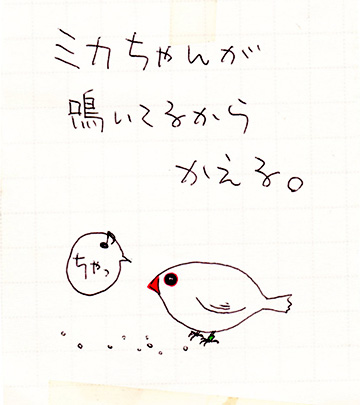 ミカちゃんが
鳴いてるから
かえる。
ちゃっ